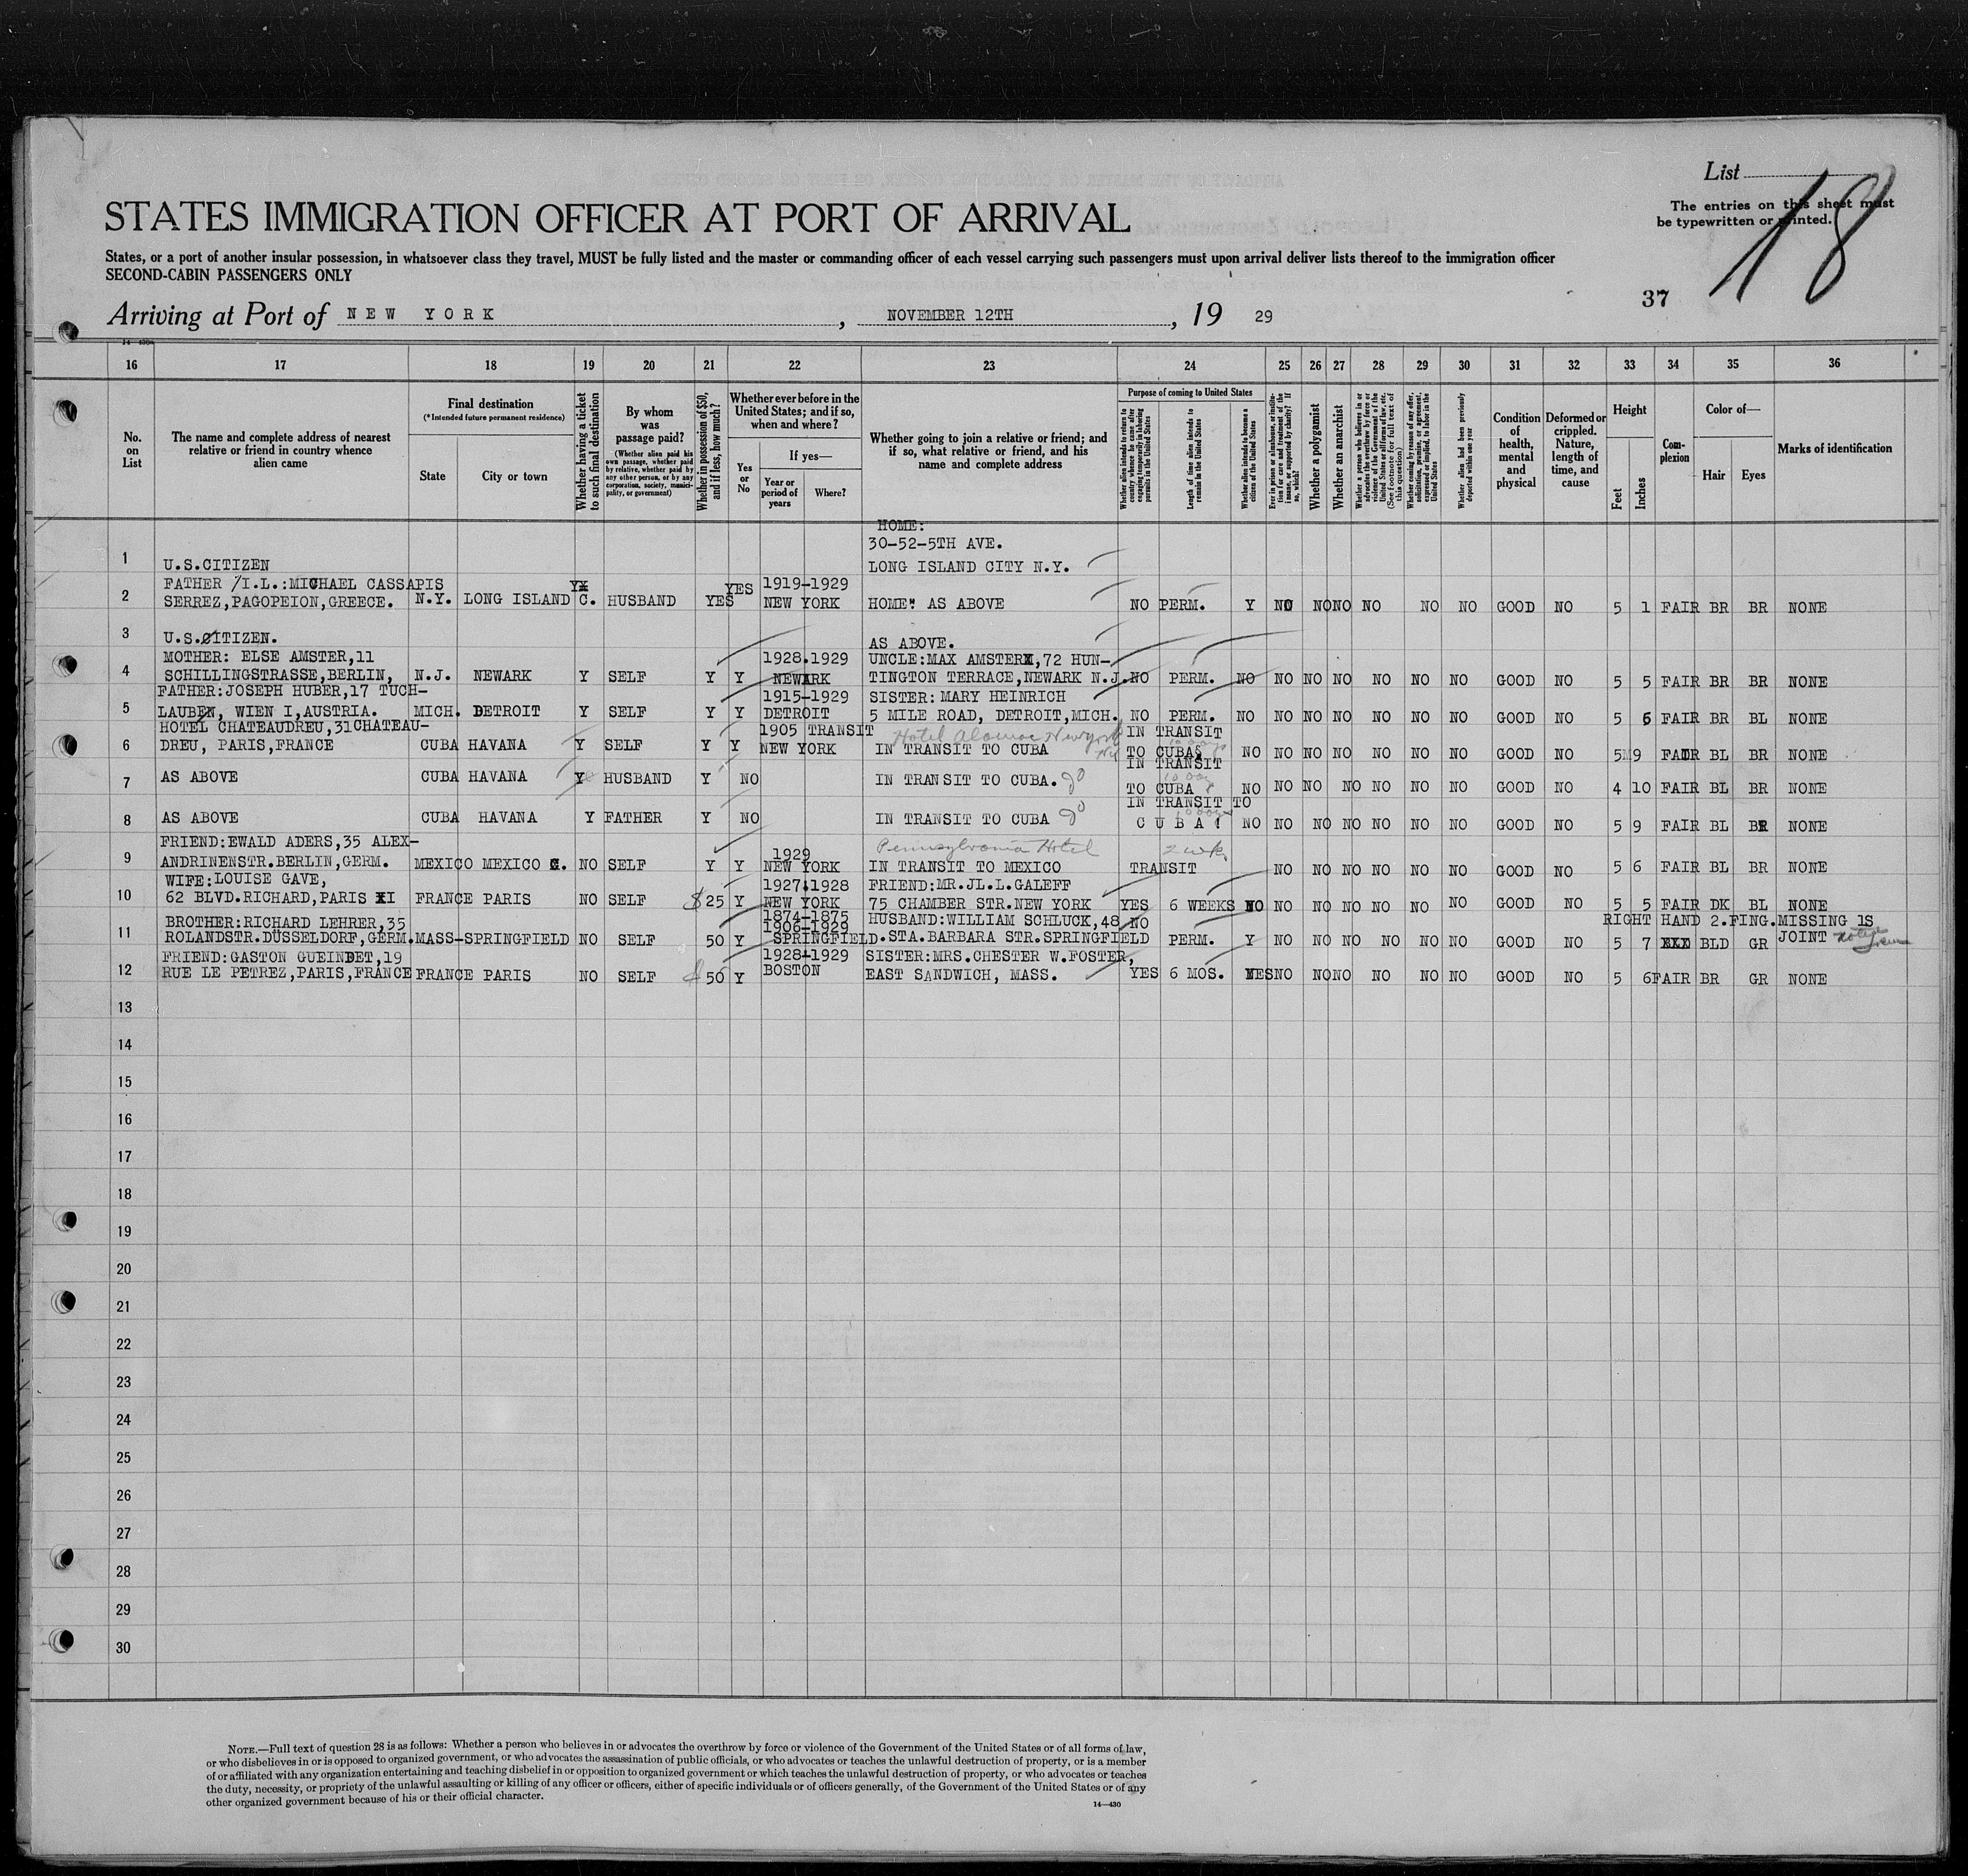 List
18
The entries on this sheet must
be typewritten or printed.
STATES IMMIGRATION OFFICER AT PORT OF ARRIVAL
States, or a port of another insular possession, in whatsoever class they travel, MUST be fully listed and the master or commanding officer of each vessel carrying such passengers must upon arrival deliver lists thereof to the immigration officer
SECOND-CABIN PASSENGERS ONLY
37
Arriving at Port of NEW YORK, NOVEMBER 12TH, 19 29
16 17 18 19 20 21 22 23 24 25 26 27 28 29 30 31 32 33 34 35 36
No. on List
The name and complete address of nearest relative or friend in country whence alien came
Final destination
(*Intended future permanent residence)
State
City or town
Whether having a ticket to such final destination
By whom was passage paid?
(Whether alien paid his own passage, whether paid by relative, whether paid by any other person, or by any corporation, society, municipality, or government)
Whether in possession of $50, and if less, how much?
Whether ever before in the United States; and if so, when and where?
Yes or No
If yes—
Year or period of years
Where?
Whether going to join a relative or friend; and if so, what relative or friend, and his name and complete address
Purpose of coming to United States
Whether alien intends to return to country whence he came after engaging temporarily in laboring pursuits in the United States
Length of time alien intends to remain in the United States
Whether alien intends to become a citizen of the United States
Ever in prison or almshouse, or institution for care and treatment of the insane, or supported by charity? If so, which?
Whether a polygamist
Whether an anarchist
Whether a person who believes in or advocates the overthrow by force or violence of the Government of the United States or all forms of law, etc. (See footnote for full text of this question)
Whether coming by reason of any offer, solicitation, promise, or agreement, expressed or implied, to labor in the United States
Whether alien had been previously deported within one year
Condition of health, mental and physical
Deformed or crippled. Nature, length of time, and cause
Height
Feet
Inches
Com-plexion
Color of—
Hair
Eyes
Marks of identification
HOME:
30-52-5TH AVE.
1 U.S.CITIZEN LONG ISLAND CITY N.Y.
FATHER /I.L.:MICHAEL CASSAPIS YES 1919-1929
2 SERREZ,PAGOPEION,GREECE. N.Y. LONG ISLAND C. HUSBAND YES NEW YORK HOME: AS ABOVE NO PERM. Y NO NO NO NO NO NO GOOD NO 5 1 FAIR BR BR NONE
3 U.S.CITIZEN. AS ABOVE.
MOTHER: ELSE AMSTER,11 1928.1929 UNCLE:MAX AMSTER,72 HUN-
4 SCHILLINGSTRASSE,BERLIN, N.J. NEWARK Y SELF Y Y NEWARK TINGTON TERRACE,NEWARK N.J. NO PERM. NO NO NO NO NO NO NO GOOD NO 5 5 FAIR BR BR NONE
FATHER:JOSEPH HUBER,17 TUCH- 1915-1929 SISTER: MARY HEINRICH
5 LAUBEN, WIEN I,AUSTRIA. MICH. DETROIT Y SELF Y Y DETROIT 5 MILE ROAD, DETROIT,MICH. NO PERM. NO NO NO NO NO NO NO GOOD NO 5 6 FAIR BR BL NONE
HOTEL CHATEAUDREU,31CHATEAU- 1905 TRANSIT Hotel Alamac New York IN TRANSIT
6 DREU, PARIS,FRANCE CUBA HAVANA Y SELF Y Y NEW YORK IN TRANSIT TO CUBA TO CUBA NO NO NO NO NO NO NO GOOD NO 5 9 FAIR BL BR NONE
IN TRANSIT
7 AS ABOVE CUBA HAVANA Y HUSBAND Y NO IN TRANSIT TO CUBA. do TO CUBA NO NO NO NO NO NO NO GOOD NO 4 10 FAIR BL BR NONE
IN TRANSIT TO
8 AS ABOVE CUBA HAVANA Y FATHER Y NO IN TRANSIT TO CUBA do CUBA NO NO NO NO NO NO NO GOOD NO 5 9 FAIR BL BR NONE
FRIEND:EWALD ADERS,35 ALEX- 1929 Pennsylvania Hotel 2 wk
9 ANDRINENSTR.BERLIN,GERM. MEXICO MEXICO C. NO SELF Y Y NEW YORK IN TRANSIT TO MEXICO TRANSIT NO NO NO NO NO NO GOOD NO 5 6 FAIR BL BR NONE
WIFE:LOUISE GAVE, 1927.1928 FRIEND:MR.JL.L.GALEFF
10 62 BLVD.RICHARD,PARIS XI FRANCE PARIS NO SELF $25 Y NEW YORK 75 CHAMBER STR.NEW YORK YES 6 WEEKS NO NO NO NO NO NO NO GOOD NO 5 5 FAIR DK BL NONE
BROTHER:RICHARD LEHRER,35 1874-1875 1906-1929 HUSBAND:WILLIAM SCHLUCK,48 NO RIGHT HAND 2.FING.MISSING 1S
11 ROLANDSTR.DÜSSELDORF,GERM. MASS-SPRINGFIELD NO SELF 50 Y SPRINGFIELD. STA.BARBARA STR.SPRINGFIELD PERM. Y NO NO NO NO NO NO GOOD NO 5 7 BLD GR JOINT
FRIEND:GASTON GUEINDET,19 1928-1929 SISTER:MRS.CHESTER W.FOSTER,
12 RUE LE PETREZ,PARIS,FRANCE FRANCE PARIS NO SELF $50 Y BOSTON EAST SANDWICH, MASS. YES 6 MOS. YES NO NO NO NO NO NO GOOD NO 5 6 FAIR BR GR NONE
13
14
15
16
17
18
19
20
21
22
23
24
25
26
27
28
29
30
NOTE.—Full text of question 28 is as follows: Whether a person who believes in or advocates the overthrow by force or violence of the Government of the United States or of all forms of law,
or who disbelieves in or is opposed to organized government, or who advocates the assassination of public officials, or who advocates or teaches the unlawful destruction of property, or is a member
of or affiliated with any organization entertaining and teaching disbelief in or opposition to organized government or which teaches the unlawful destruction of property, or who advocates or teaches
the duty, necessity, or propriety of the unlawful assaulting or killing of any officer or officers, either of specific individuals or of officers generally, of the Government of the United States or of any
other organized government because of his or their official character.
14—430